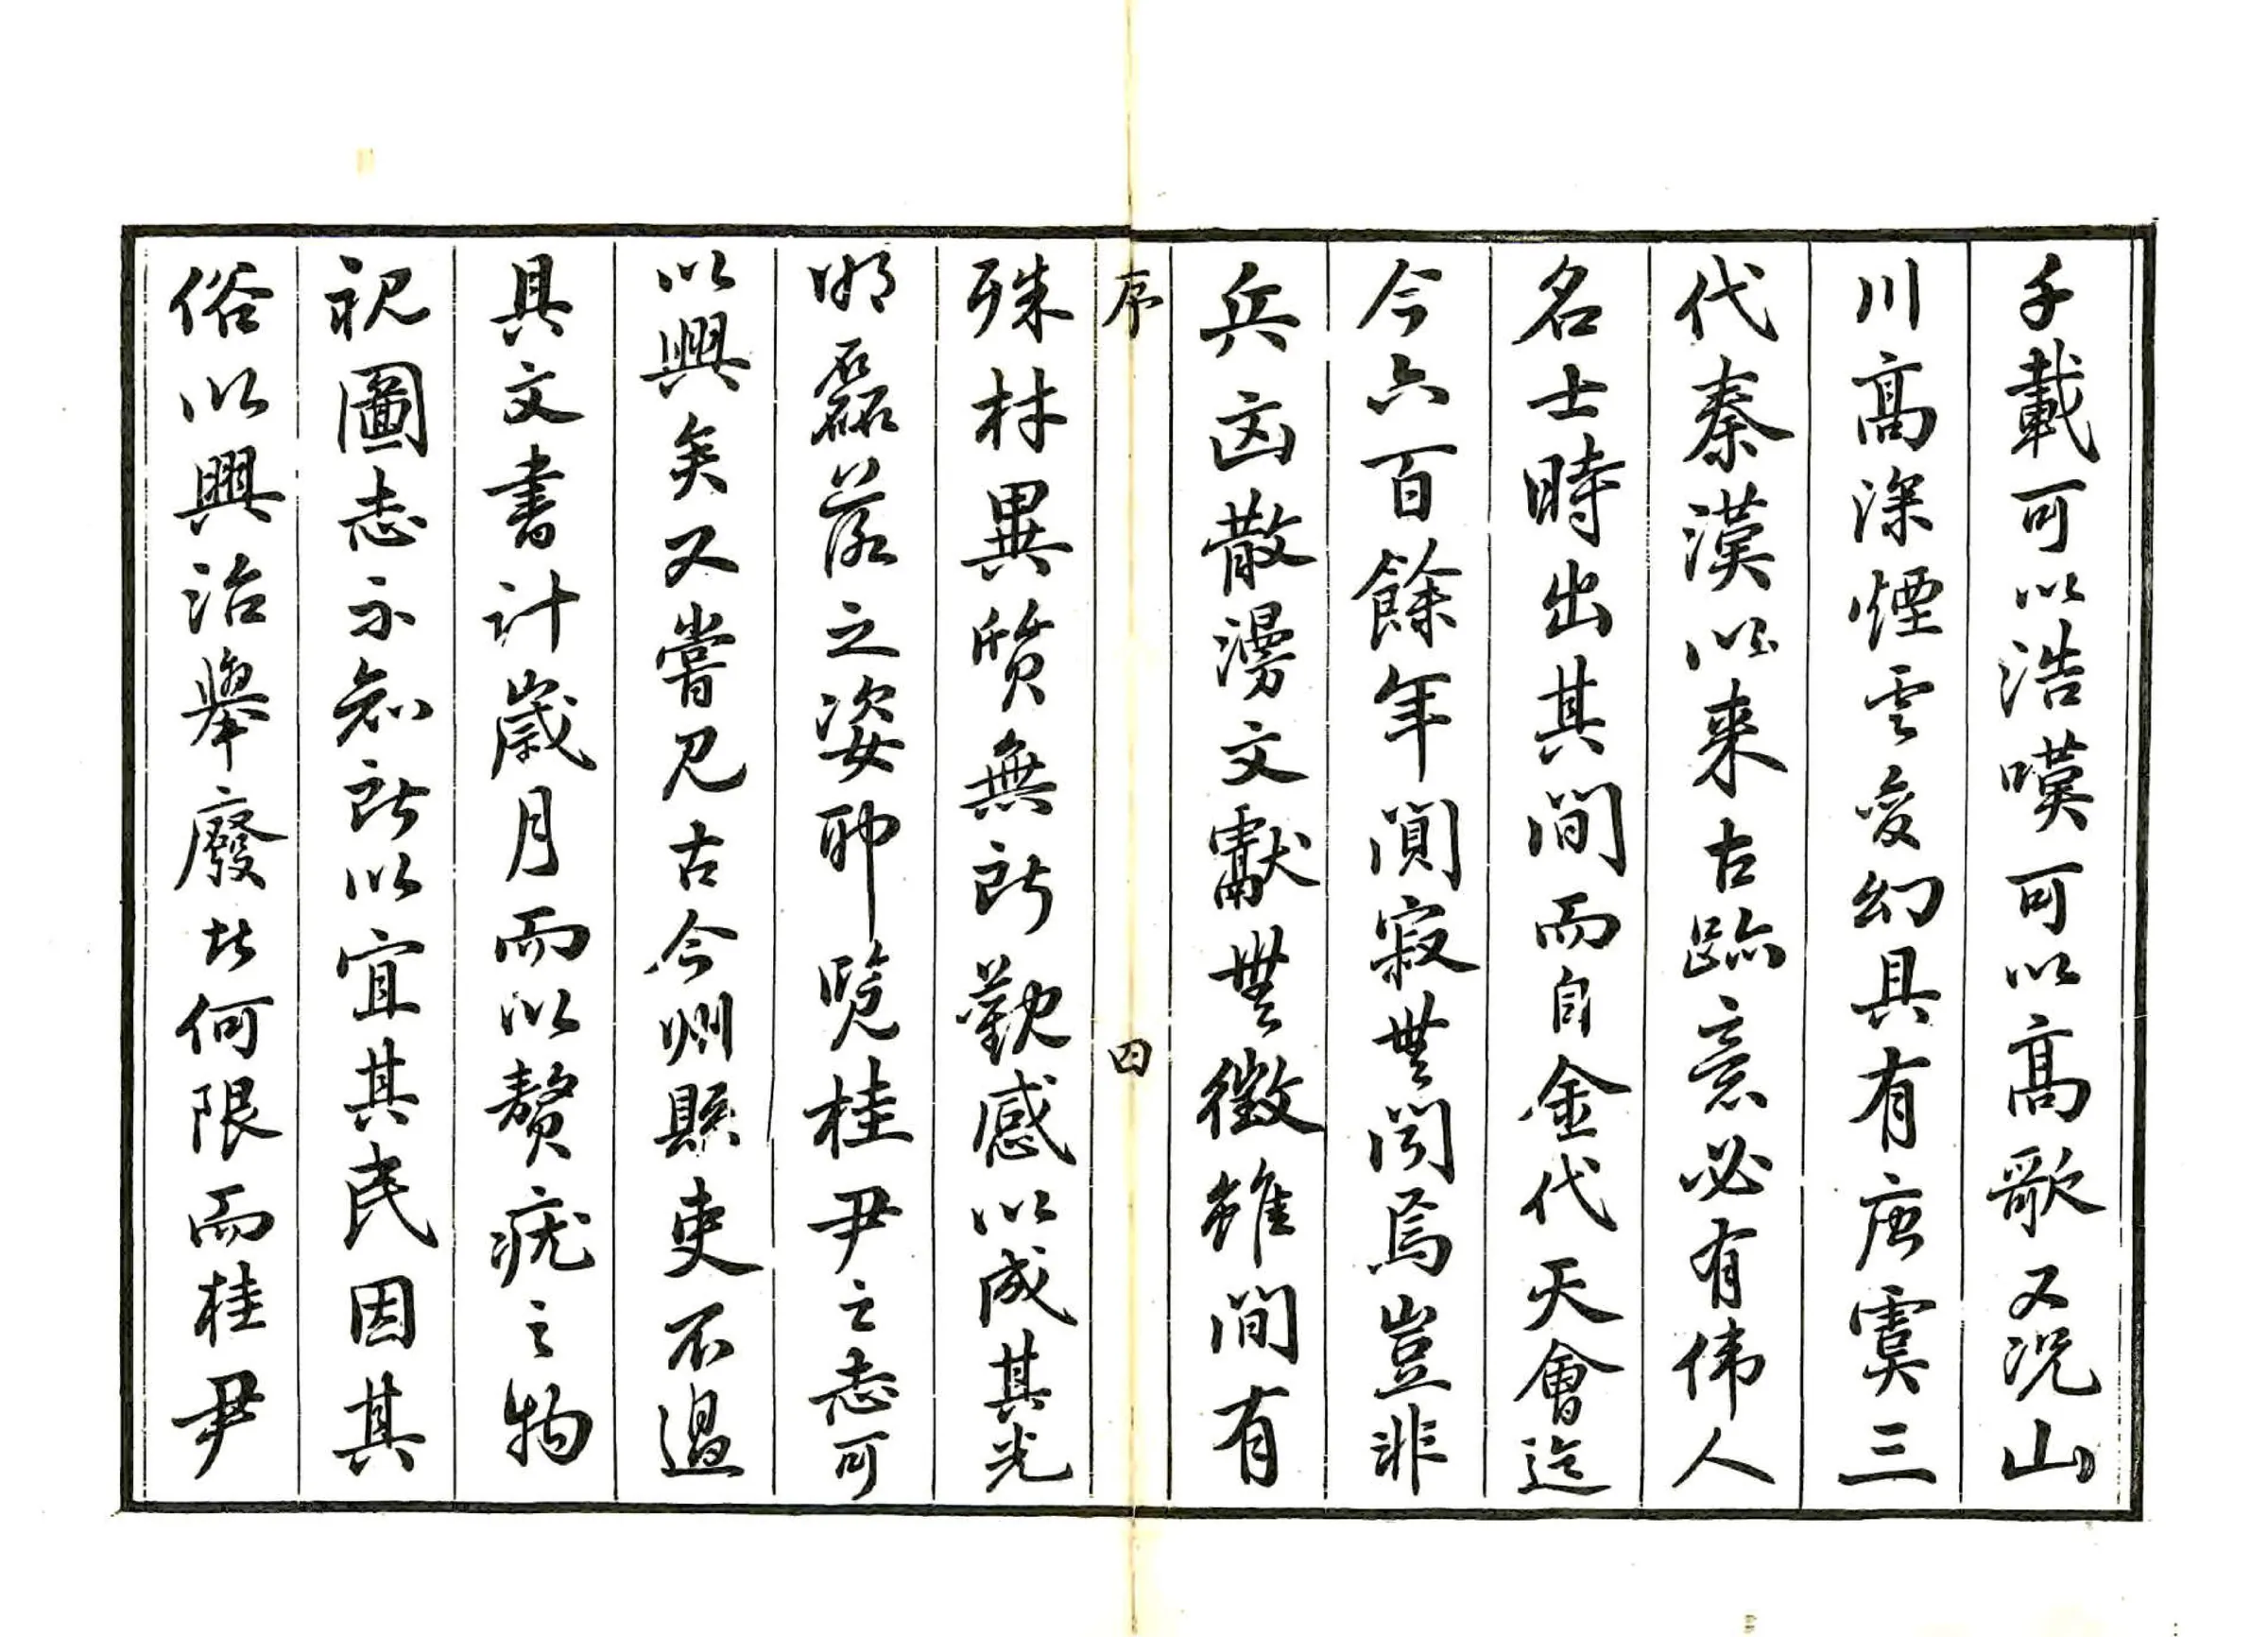 千載可以浩嘆可以高歌又況山
川高深煙雲變幻具有唐虞三
代秦漢以来古跡意必有偉人
名士時出其間而自金代天會迄
今六百餘年闃寂無聞焉豈非
兵凶散漫文獻無徵雖間有
序
四
殊材異質無所觀感以成其光
明磊落之姿耶覽桂尹之志可
以興矣又嘗見古今州縣吏不過
具文書計歲月而以贅疣之物
視圖志亦知所以宜其民因其
俗以興治舉廢者何限而桂尹